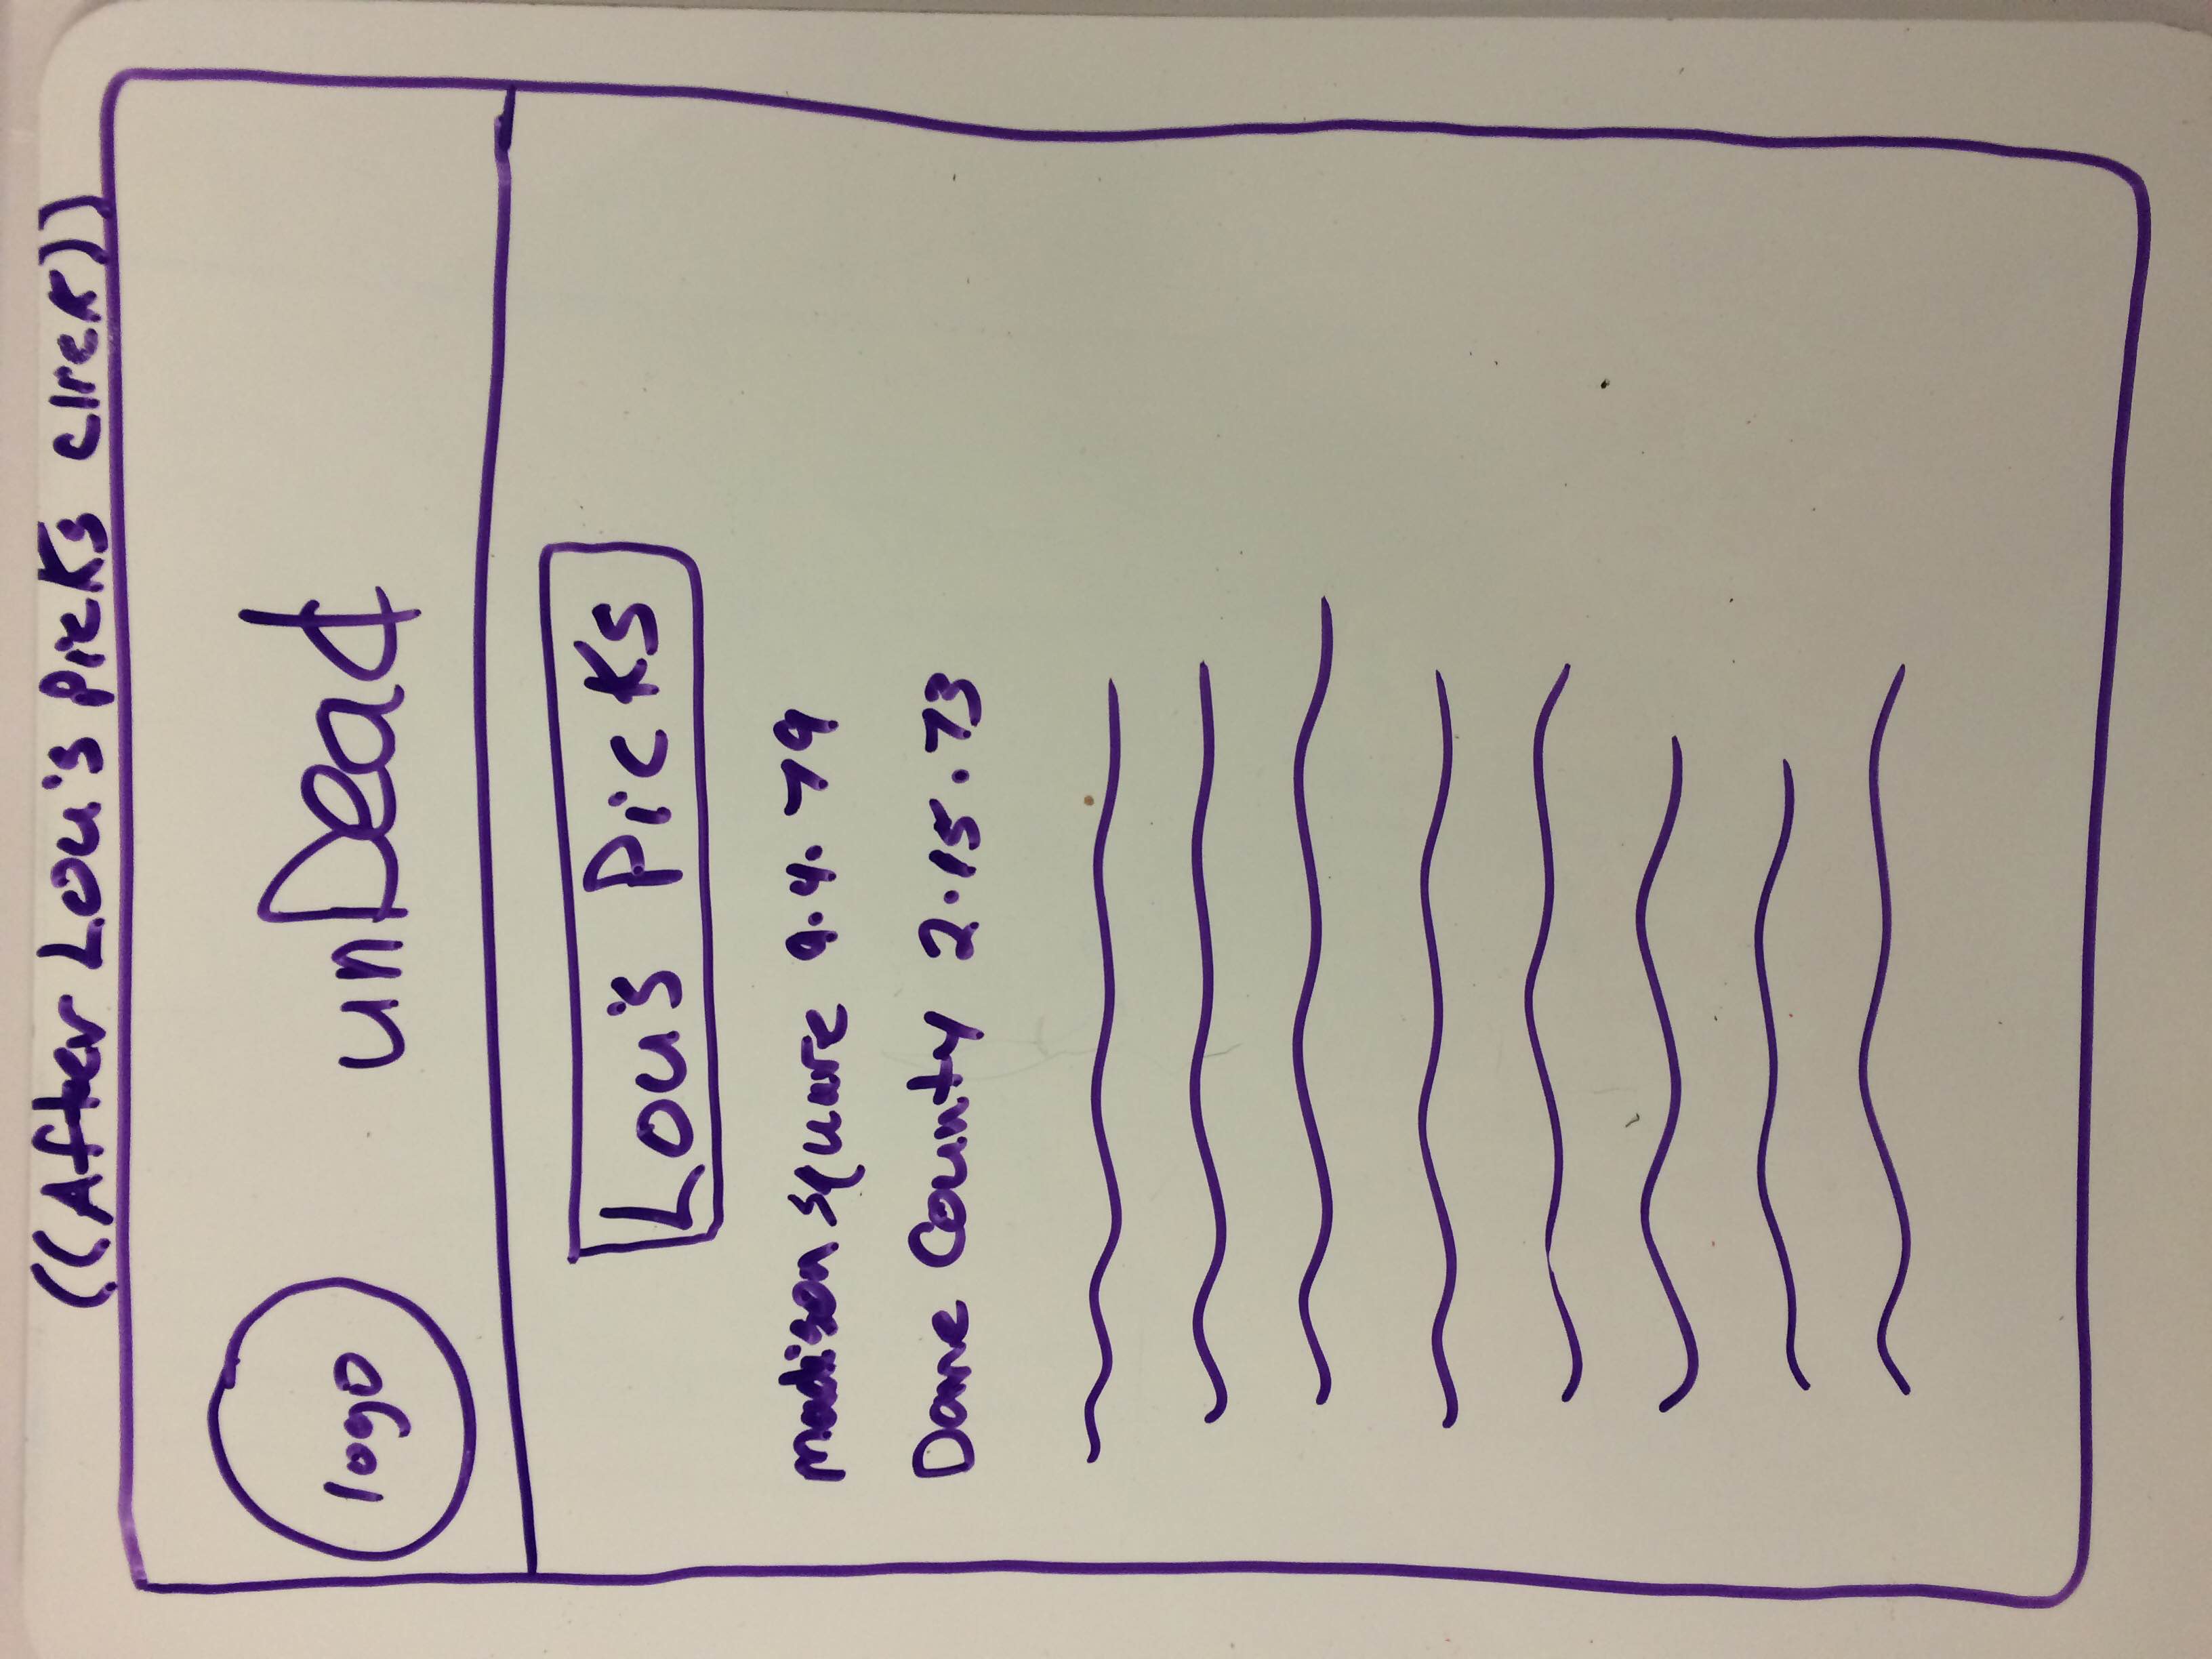 ((After Lou's Picks click))
logo
unDead
Lou's Picks
madison square 9.4.79
Dane County 2.15.73